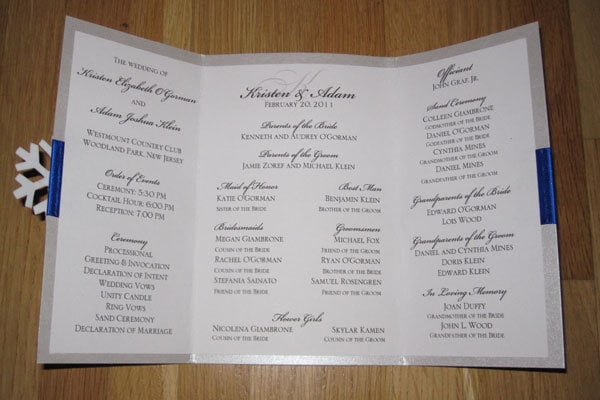 The wedding of
Kristen Elizabeth O'Gorman
and
Adam Joshua Klein
Westmount Country Club
Woodland Park, New Jersey
Order of Events
Ceremony: 5:30 PM
Cocktail Hour: 6:00 PM
Reception: 7:00 PM
Ceremony
Processional
Greeting & Invocation
Declaration of Intent
Wedding Vows
Unity Candle
Ring Vows
Sand Ceremony
Declaration of Marriage
K
Kristen & Adam
February 20, 2011
Parents of the Bride
Kenneth and Audrey O'Gorman
Parents of the Groom
Jamie Zoref and Michael Klein
Maid of Honor
Katie O'Gorman
Sister of the Bride
Best Man
Benjamin Klein
Brother of the Groom
Bridesmaids
Megan Giambrone
Cousin of the Bride
Rachel O'Gorman
Cousin of the Bride
Stefania Sainato
Friend of the Bride
Groomsmen
Michael Fox
Friend of the Groom
Ryan O'Gorman
Brother of the Bride
Samuel Rosengren
Friend of the Groom
Flower Girls
Nicolena Giambrone
Cousin of the Bride
Skylar Kamen
Cousin of the Groom
Officiant
John Graf, Jr.
Sand Ceremony
Colleen Giambrone
Godmother of the Bride
Daniel O'Gorman
Godfather of the Bride
Cynthia Mines
Grandparents of the Groom
Daniel Mines
Grandparents of the Bride
Edward O'Gorman
Lois Wood
Grandparents of the Groom
Daniel and Cynthia Mines
Doris Klein
Edward Klein
In Loving Memory
Joan Duffy
Grandmother of the Bride
John L. Wood
Grandfather of the Bride